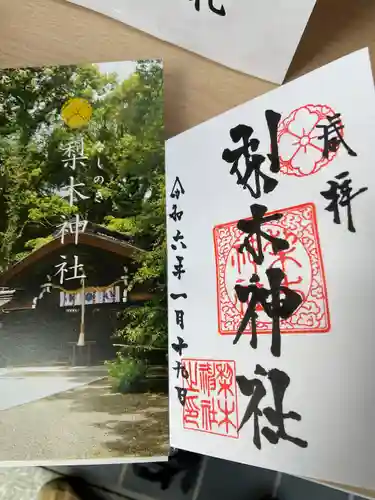 なしのき
梨木神社
奉拝
梨木神社
令和六年一月十九日
梨木
神社
之印
札